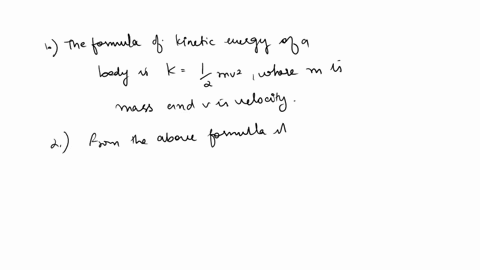 1.) The formula of kinetic energy of a
body is K = 1/2 mv², where m is
mass and v is velocity.
2.) From the above formula